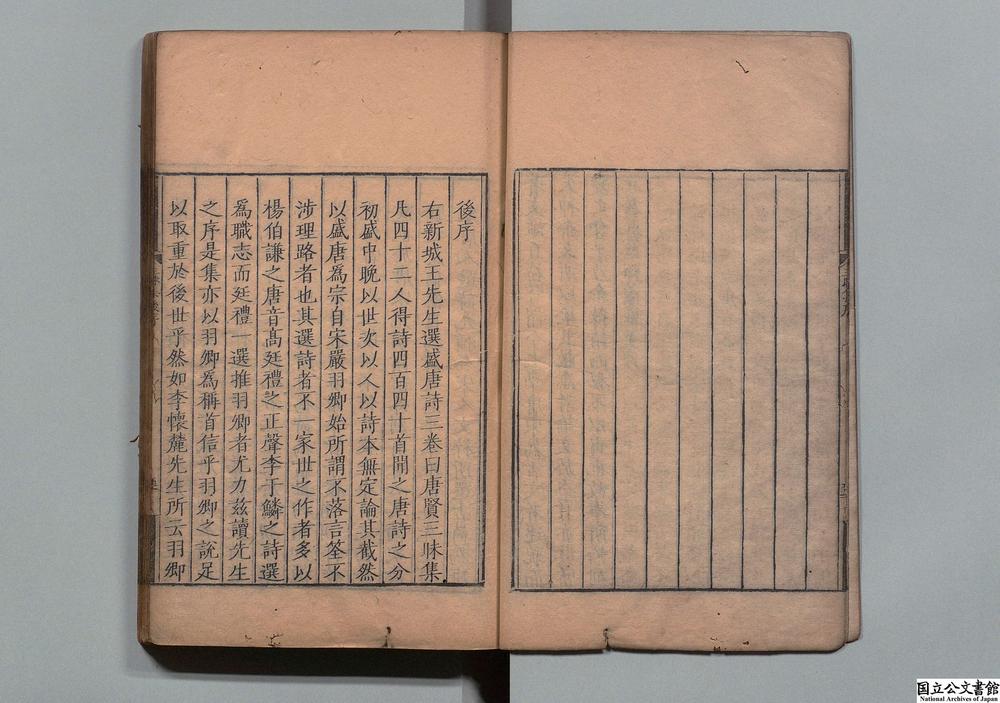 後序
右新城王先生選盛唐詩三卷曰唐賢三昧集
凡四十二人得詩四百四十首聞之唐詩之分
初盛中晚以世次以人以詩本無定論其截然
以盛唐爲宗自宋嚴羽卿始所謂不落言筌不
涉理路者也其選詩者不一家世之作者多以
楊伯謙之唐音高廷禮之正聲李于鱗之詩選
爲職志而廷禮一選推羽卿者尤力茲讀先生
之序是集亦以羽卿爲稱首信乎羽卿之說足
以取重於後世乎然如李懷麓先生所云羽卿
国立公文書館
National Archives of Japan